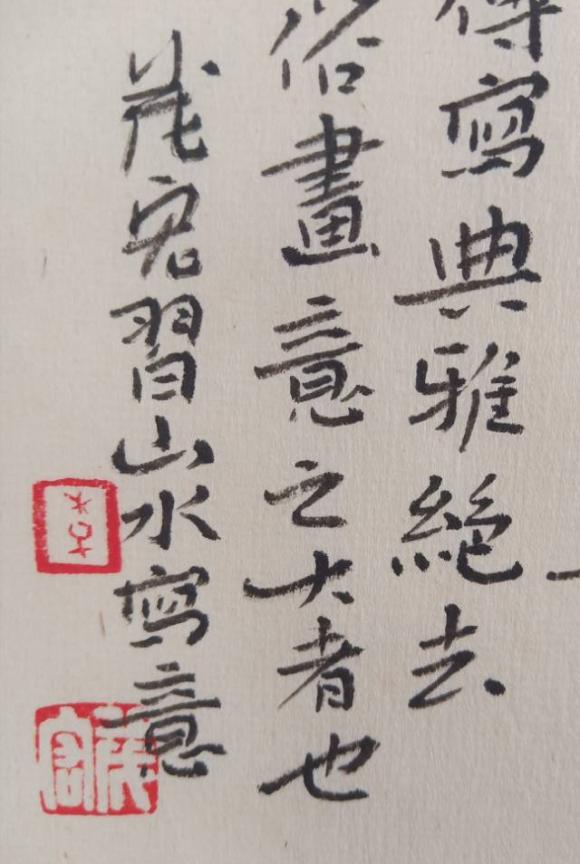 傳寫典雅絕去
俗畫意之大者也
茂宏習山水寫意